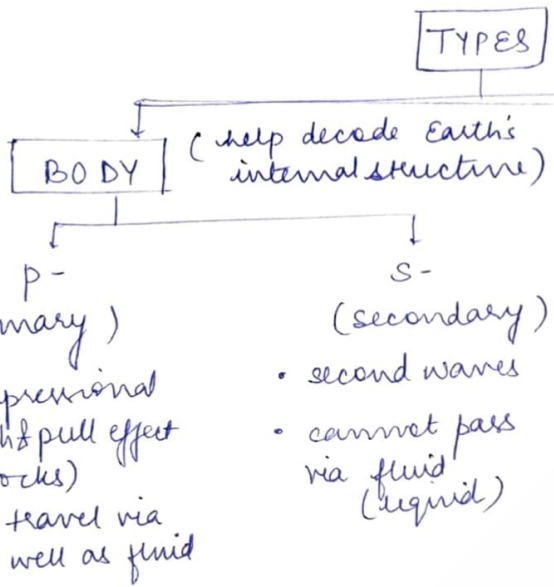 TYPES
BODY
(help decode Earth's
internal structure)
P-
mary)
pressional
h & pull effect
ocks)
travel via
well as fluid
S-
(secondary)
• second waves
• cannot pass
via fluid
(liquid)